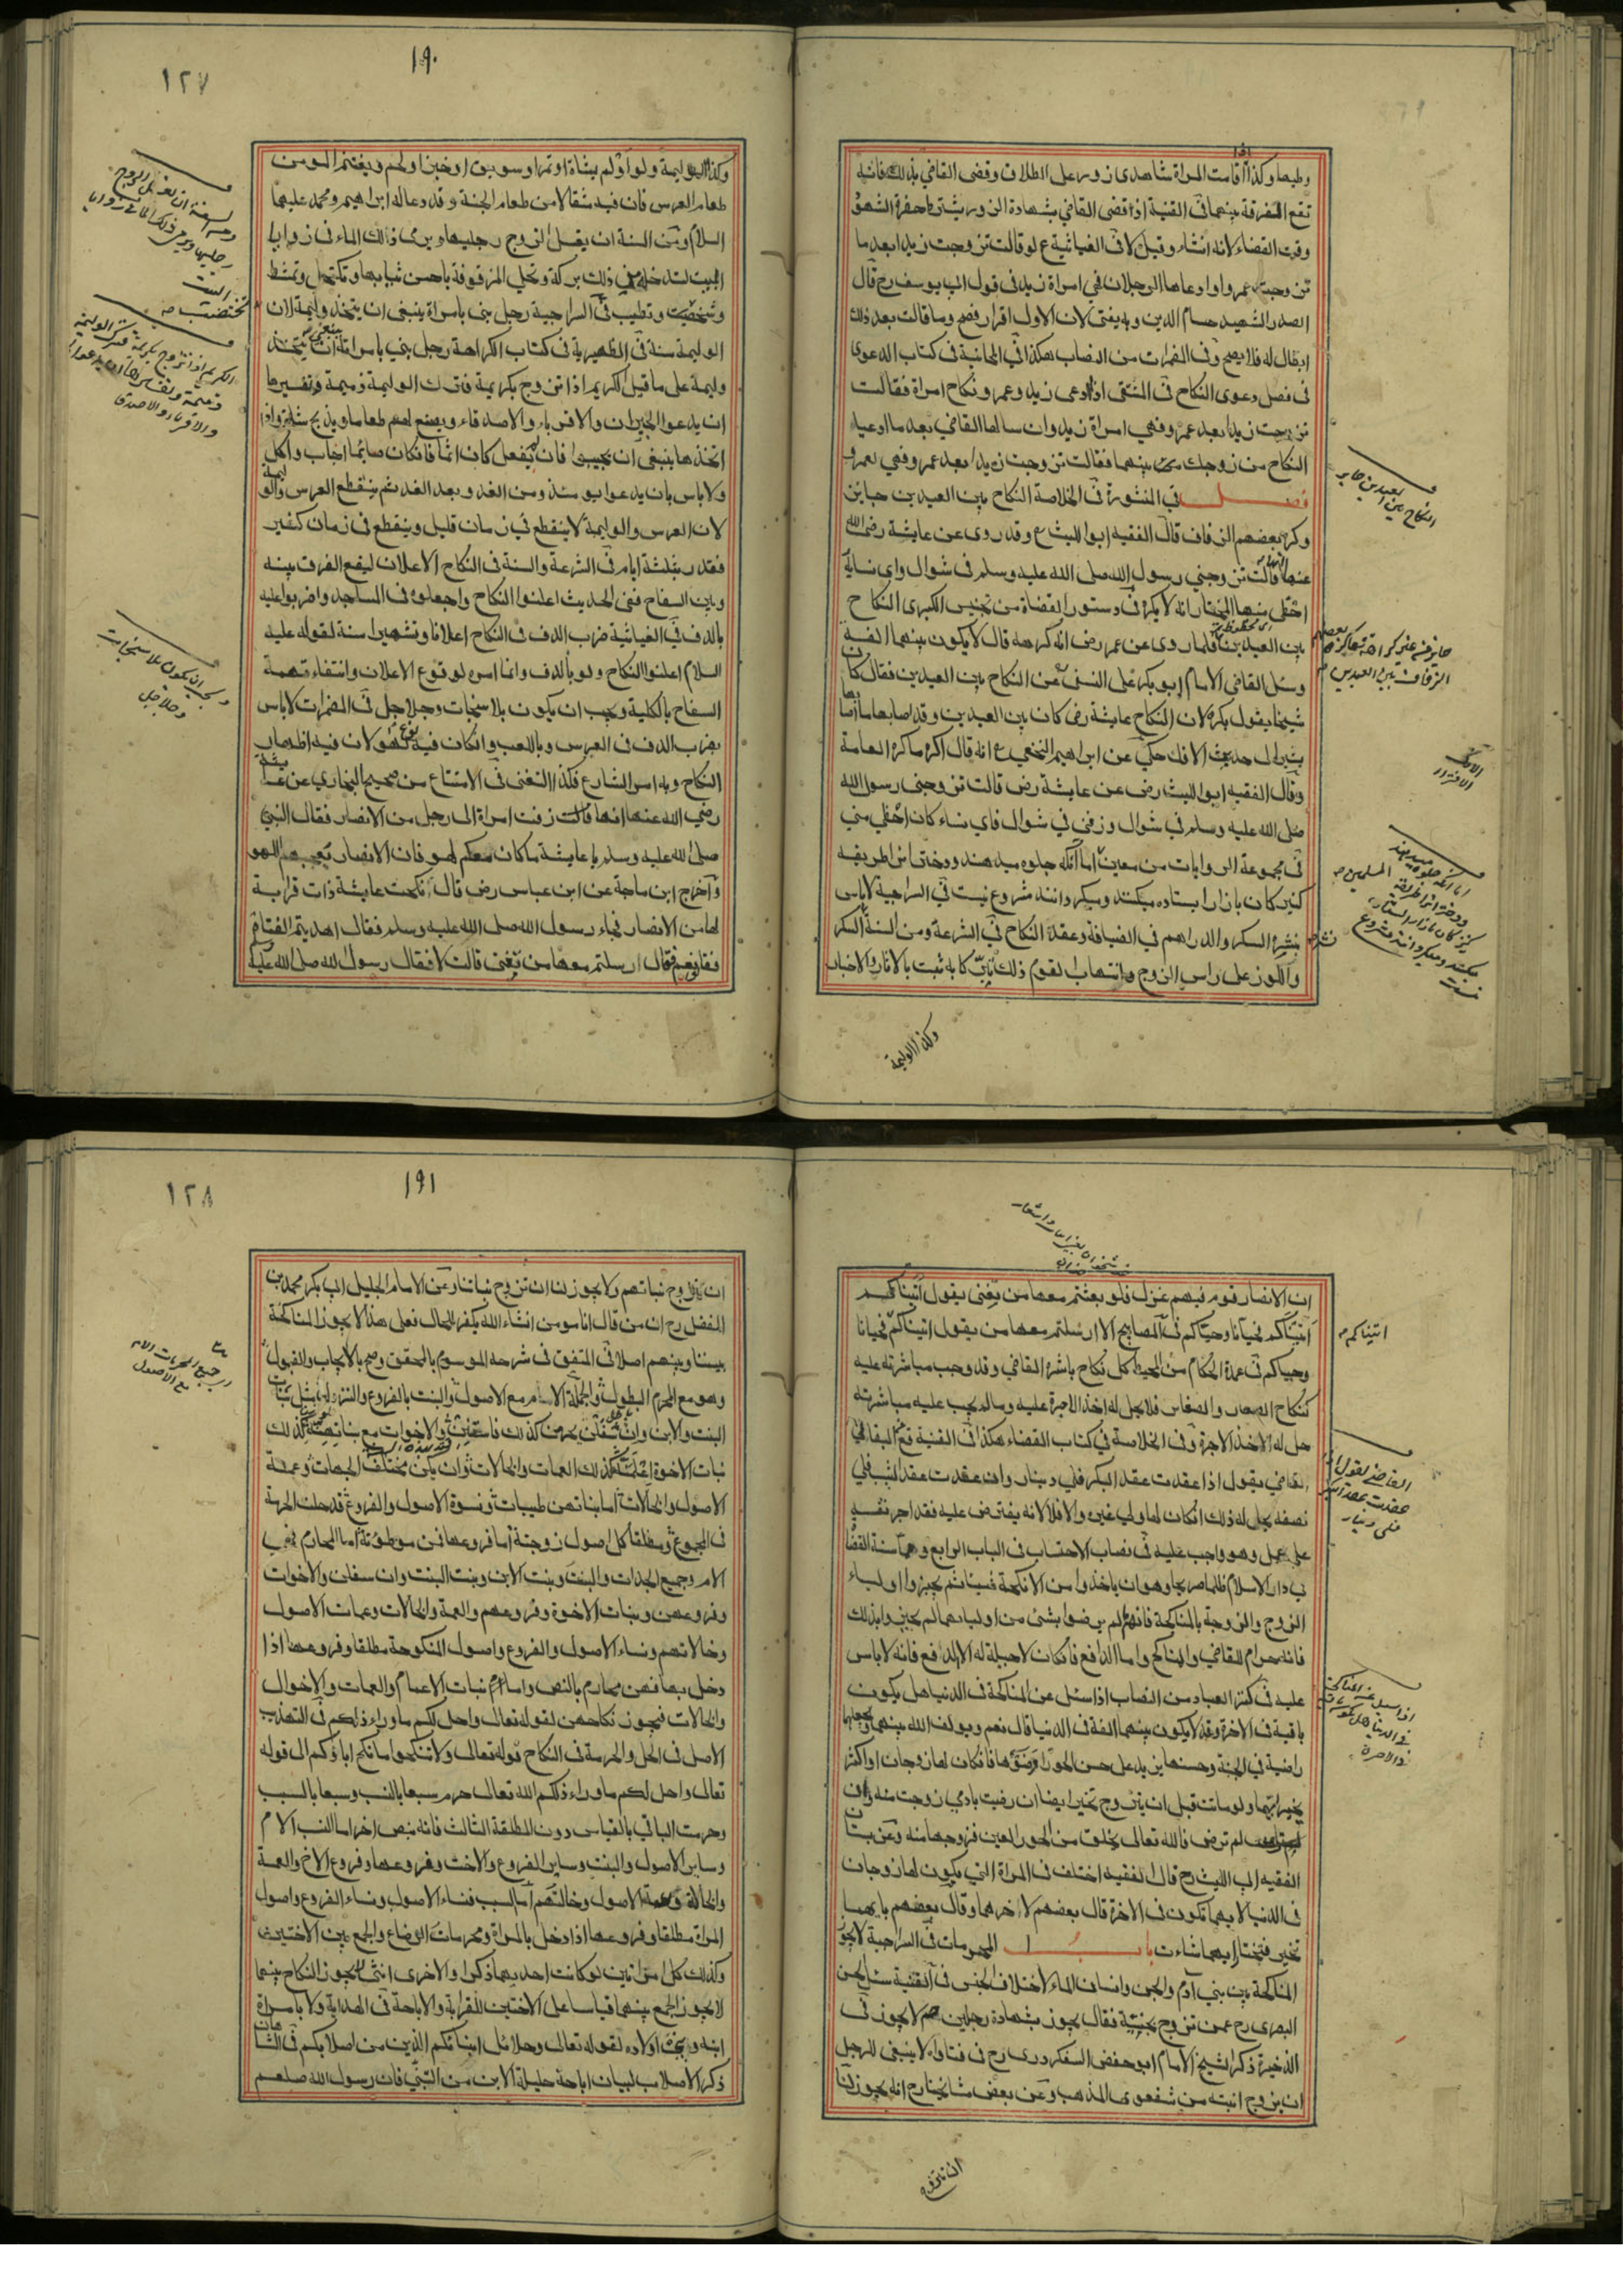 وطيها وكذا اذا اقامت المراة شاهدى زور على الطلاق وقضى القاضي بذلك فانه
تقع الفرقة بينهما في القنية اذا قضى القاضي بشهادة الزور يشترط حضرة الشهود
وقت القضاء لانه انشاء وقيل لا في الغياثية ع لو قالت تزوجت زيدا بعد ما
تزوجت عمروا وادعاها الرجلان فهي امراة زيد في قول ابي يوسف رح قال
الصدر الشهيد حسام الدين وبه يفتى لان الاول اقرار فصح وما قالت بعد ذلك
ابطال له فلا يصح وفي المضمرات من النصاب هكذا في الخانية في كتاب الدعوى
في فصل دعوى النكاح في المنتقى اذا ادعى زيد وعمرو نكاح امراة فقالت
تزوجت زيدا بعد عمرو فهي امراة زيد وان سالها القاضي بعد ما ادعيا
النكاح من زوجك منهما فقالت تزوجت زيدا بعد عمرو فهي لعمرو
فصل في المنثورة في الخلاصة النكاح بين العيدين جايز
وكره بعضهم الزفاف قال الفقيه ابو الليث وقد روى عن عايشة رضى الله
عنها انها قالت تزوجني رسول الله صلى الله عليه وسلم في شوال واى نسايه
احظى منها المختار انه لا يكره في دستور القضاة من تجنيس الكبرى النكاح
بين العيدين فلما روى عن عمر رض انه كرهه قال لا يكون بينهما الفة
وسئل القاضي الامام ابو بكر على النسفي عن النكاح بين العيدين فقال كان
شيخنا يقول يكره لان النكاح عايشة رض كان بين العيدين وقد اصابها ما اصابها
حديث الافك حكي عن ابراهيم النخعي انه قال اكره ما كره العامة
وقال الفقيه ابو الليث رض عن عايشة رض قالت تزوجني رسول الله
صلى الله عليه وسلم في شوال وزفني في شوال فاي نساء كان احظي مني
في مجموعة الروايات من معين اما آنكه جلوه ميدهند ودختانرا طريقه
كنيزكان بازارا ستاده ميكنند وميكردانند مشروع نيست في السراجية لاباس
بنثر السكر والدراهم في الضيافة وعقدة النكاح في الشرعة ومن السنة السكر
واللوز على راس الزوج وانتهاب لقوم ذلك كل به ثبت بالاثار والاخبار
وكذا الوليمة
النكاح بين العيدين جايز
١٩٠
١٢٧
وكذا الوليمة ولو اولم بشاة او تمر او سويق او خبز او لحم ويغتنم المومن
طعام العرس فان فيه مثقالا من طعام الجنة وقد دعا له ابراهيم ومحمد عليهما
السلام ومن السنة ان يغسل الزوج رجليها ويرمى ذلك الماء في زوايا
البيت لتدخل في ذلك بركة وتحلي المزفوفة باحسن ثيابها وتكتحل وتمشط
وتختضب وتطيب في السراجية رجل بنى بامراة ينبغي ان يتخذ وليمة لان
الوليمة سنة في الظهيرية في كتاب الكراهة رجل بني بامراة ينبغي ان يتخذ
وليمة على ما قيل الكريم اذا تزوج بكريمة فترك الوليمة ذميمة وتفسيرها
ان يدعو الجيران والاقرباء والاصدقاء ويصنع لهم طعاما ويذبح شاة واذا
اتخذها ينبغي ان يجيبوا فان لم يفعل كان اثما فان كان صائما اجاب واكل
ولا باس بان يدعو يومئذ ومن الغد وبعد الغد ثم ينقطع العرس والوليمة
لان العرس والوليمة لا ينقطع في زمان قليل وينقطع في زمان كثير
فقدر بثلثة ايام في الشرعة والسنة في النكاح الاعلان ليقع الفرق بينه
وبين السفاح ففي الحديث اعلنوا النكاح واجعلوه في المساجد واضربوا عليه
بالدف في الغياثية ضرب الدف في النكاح اعلانا وتشهيرا سنة لقوله عليه
السلام اعلنوا النكاح ولو بالدف وانما امره لوقوع الاعلان وانتفاء تهمة
السفاح بالكلية ويجب ان يكون بلا سنجات وجلاجل في المضمرات لاباس
بضرب الدف في العرس وباللعب وان كان فيه نوع لهو لان فيه اظهار
النكاح وبه امر الشارع فكذا التغنى في الامتناع من صحيح البخاري عن عايشة
رضي الله عنها انها قالت زفت امراة الى رجل من الانصار فقال النبي
صلى الله عليه وسلم يا عايشة ما كان معكم لهو فان الانصار تعجبهم اللهو
واخرج ابن ماجة عن ابن عباس رض قال انكحت عايشة ذات قرابة
لها من الانصار فجاء رسول الله صلى الله عليه وسلم فقال اهديتم الفتاة
فقالوا نعم فقال ارسلتم معها من تغنى قالت لا فقال رسول الله صلى الله عليه
تختضب
ويجب ان يكون بلا سنجات
وجلاجل
ان الانصار قوم فيهم غزل فلو بعثتم معها من يغنى يقول اتيناكم
اتيناكم فحيانا وحياكم في المصابيح الا ارسلتم معها من يقول اتيناكم فحيانا
وحياكم في عمدة الحكام من المحيط كل نكاح باشره القاضي وقد وجب مباشرته عليه
كنكاح الصغار والصغاير فلا يحل له اخذ الاجرة عليه وما لم يجب عليه مباشرته
حل له الاخذ الاجرة وفي الخلاصة في كتاب القضاء هكذا في القنية قع البقالي
القاضي يقول اذا عقدت عقد البكر فلي دينار وان عقدت عقد الثيب فلي
نصفه يحل له ذلك ان كان لها ولي غيره والا فلا لانه يفترض عليه فقد اجر نفسه
على عمل وهو واجب عليه في نصاب الاحتساب في الباب الرابع وهما سنة القضاة
في دار الاسلام ظلما صريحا وهو ان ياخذوا من الانكحة شيئا ثم يجيزوا اولياء
الزوج والزوجة بالمناكحة فانهم لم يرضوا بشئ من اوليائهما لم يجيزوا بذلك
فانه حرام للقاضي والمناكح واما الدافع فان كان لاحيلة له الا الدفع فانه لاباس
عليه في كنز العباد من النصاب اذا سئل عن المناكحة في الدنيا هل يكون
باقية في الاخرة وقد لا يكون بينهما الفة في الدنيا قال نعم ويولف الله بينهما ويجعلها
راضية في الجنة وحسنها يزيد على حسن الحور فان كان لها زوجان او اكثر
تخير ايهما ولو ماتت قبل ان يتزوج تخير ايضا ان رضيت بادمي زوجت منه وان
لم ترض فالله تعالى يخلق من الحور العين فزوجها منه وعن بستان
الفقيه ابي الليث رح قال الفقيه اختلف في المراة التي يكون لها زوجان
في الدنيا لايهما تكون في الاخرة قال بعضهم لاخرهما وقال بعضهم بانها
تخير فتختار ايهما شاءت باب المحرمات في السراجية لا يجوز
المناكحة بين بني ادم والجن وانسان الماء لاختلاف الجنس في القنية سئل الحسن
البصرى رح عمن تزوج بجنية فقال يجوز بشهادة رجلين هم لا يجوز في
الذخيرة ذكر الشيخ الامام ابو حفص السفكردرى رح في فتاواه لا ينبغي للرجل
ان يزوج ابنته من شفعوى المذهب وعن بعض مشايخنا رح انه يجوز لنا
اتيناكم
ان نتزوج
١٩١
١٢٨
ان نتزوج بناتهم ولا يجوز لنا ان نزوج بناتنا وعن الامام الجليل ابي بكر محمد بن
الفضل رح ان من قال انا مومن انشاء الله يكفر للحال فعلى هذا لا يجوز المناكحة
بيننا وبينهم اصلا في المتفق في شرحه الموسوم بالمحقق وصح بالايجاب والقبول
البنت والابن وان سفلن يحرمن كذلك والاخوات مع بناتهن كذلك
بنات الاخوة كذلك العمات والخالات وان يكن مختلف الجهات وعمة
الاصول والخالات اما بناتهن طيبات ونسوة الاصول والفروع قد حلت الحرمة
في المجموع ومطلقا كل اصول زوجة اما فروعها فمن موطوئة اما المحارم فهي
الام وجميع الجدات والبنت وبنت الابن وبنت البنت وان سفلن والاخوات
وفروعهن وبنات الاخوة وفروعهم والعمة والخالات وعمات الاصول
وخالاتهم ونساء الاصول والفروع واصول المنكوحة مطلقا وفروعها اذا
دخل بها فهن محارم بالنص واما بنات الاعمام والعمات والاخوال
والخالات فيجوز نكاحهن لقوله تعالى واحل لكم ما وراء ذلكم في التهذيب
الاصل في الحل والحرمة في النكاح قوله تعالى ولا تنكحوا ما نكح اباؤكم الى قوله
تعالى واحل لكم ما وراء ذلكم الله تعالى حرم سبعا بالنسب وسبعا بالسبب
وحرمت الباقي بالقياس دون المطلقة الثالث فانه بنص اخر اما النسب الام
وساير الاصول والبنت وساير الفروع والاخت وفروعها وفروع الاخ والعمة
والخالة وعمة الاصول وخالتهم اما السبب فنساء الاصول ونساء الفروع واصول
المراة مطلقا وفروعها اذا دخل بالمراة ومحرمات الرضاع والجمع بين الاختين
وكذلك كل امراتين لو كانت احديهما ذكرا والاخرى انثى لا يجوز النكاح بينهما
لا يجوز الجمع بينهما قياسا على الاختين للقرابة والاباحة في الهداية ولا بامراة
ابنه وبني اولاده لقوله تعالى وحلائل ابنائكم الذين من اصلابكم في الشاهان
ذكر الاصلاب لبيان اباحة حليلة الابن من التبني فان رسول الله صلعم